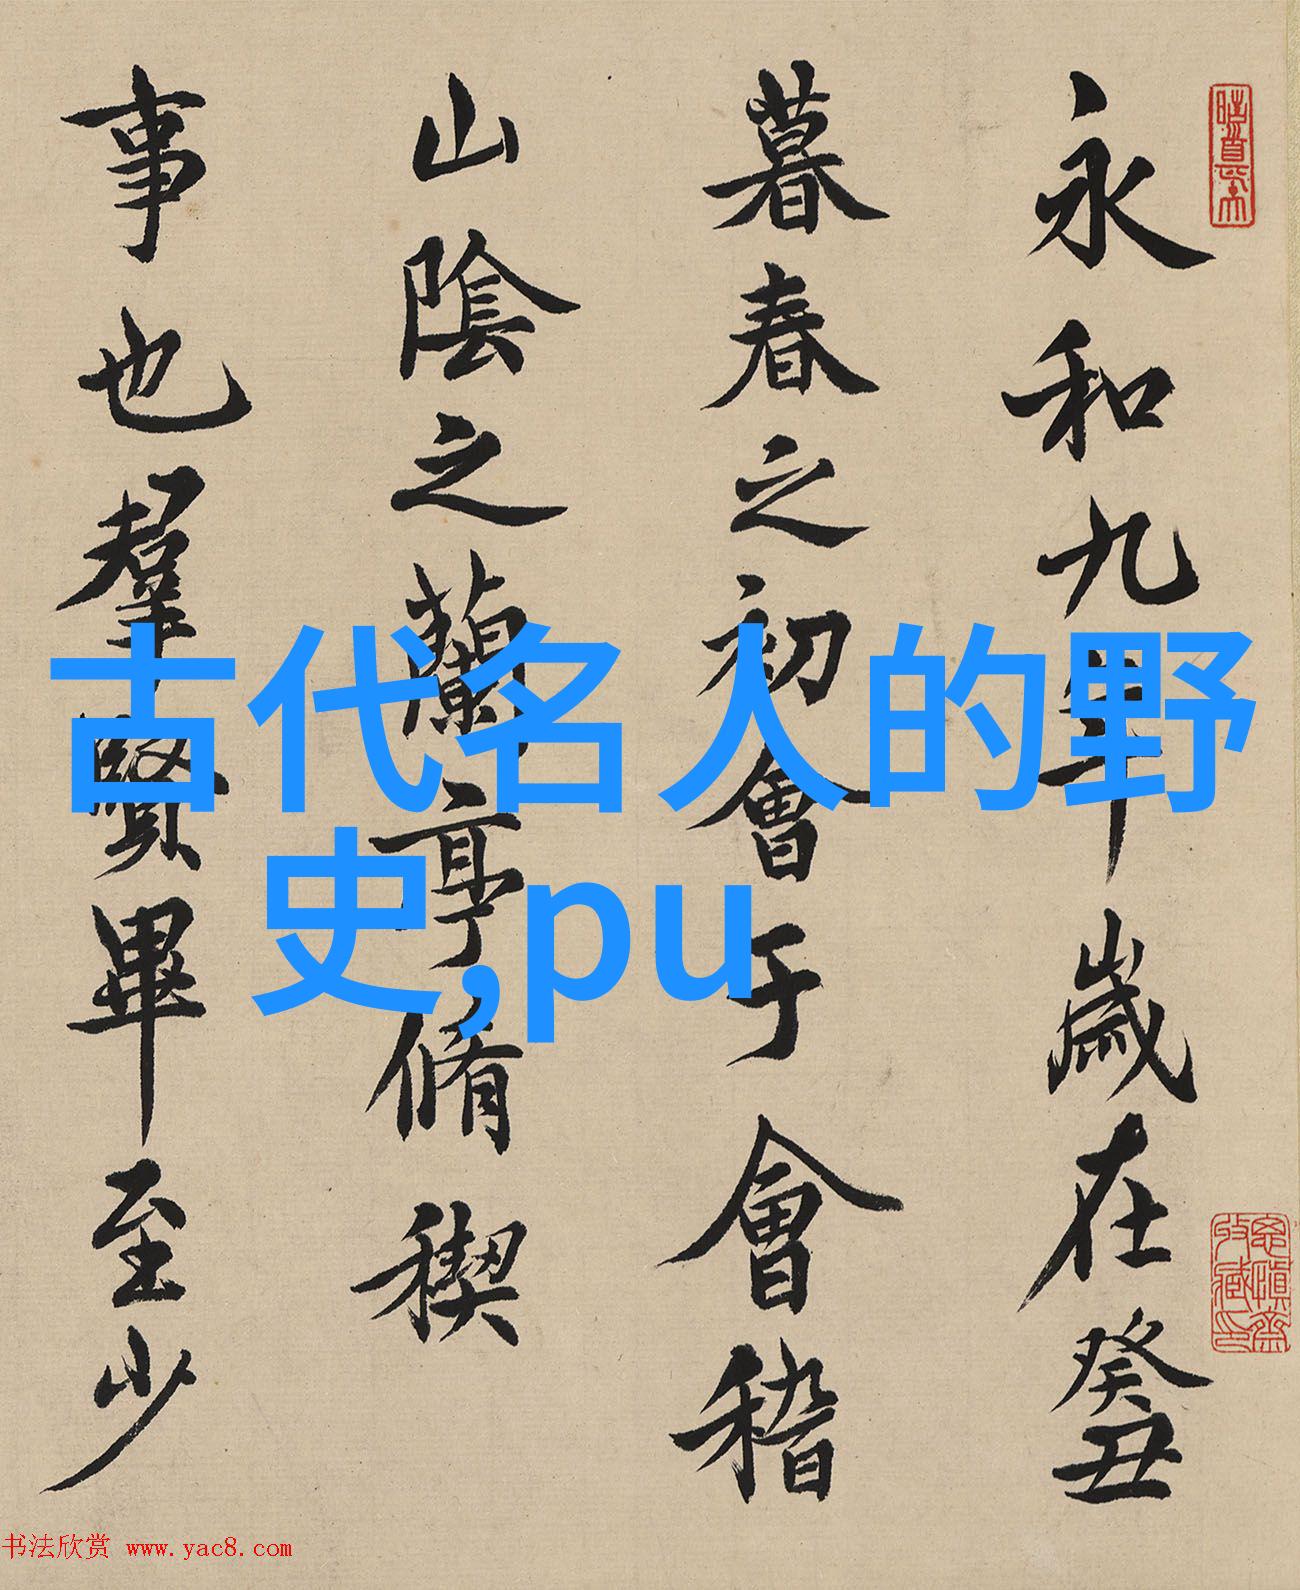 永和九年歲在癸丑
暮春之初會于會稽
山陰之蘭亭脩稧
事也羣賢畢至少
古代名人的野
史,pu
书法欣赏 www.yac8.com